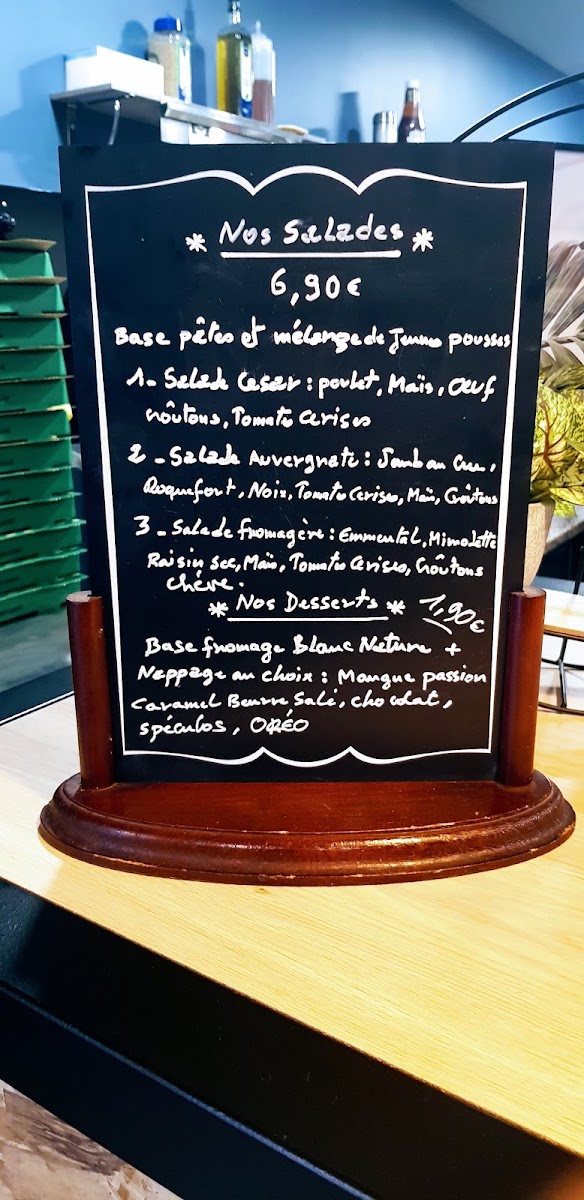 * Nos Salades *
6,90€
Base pâtes et mélange de Jeunes pousses
1 - Salade Cesar : poulet, Maïs, Œuf
Croûtons, Tomates Cerises
2 - Salade Auvergnate : Jambon Cru,
Roquefort, Noix, Tomates Cerises, Maïs, Croûtons
3 - Salade fromagère : Emmental, Mimolette
Raisin sec, Maïs, Tomates Cerises, Croûtons
chèvre.
* Nos Desserts * 1,90€
Base fromage Blanc Nature +
Nappage au choix : Mangue passion
Caramel Beurre Salé, chocolat,
spéculos, ORÉO